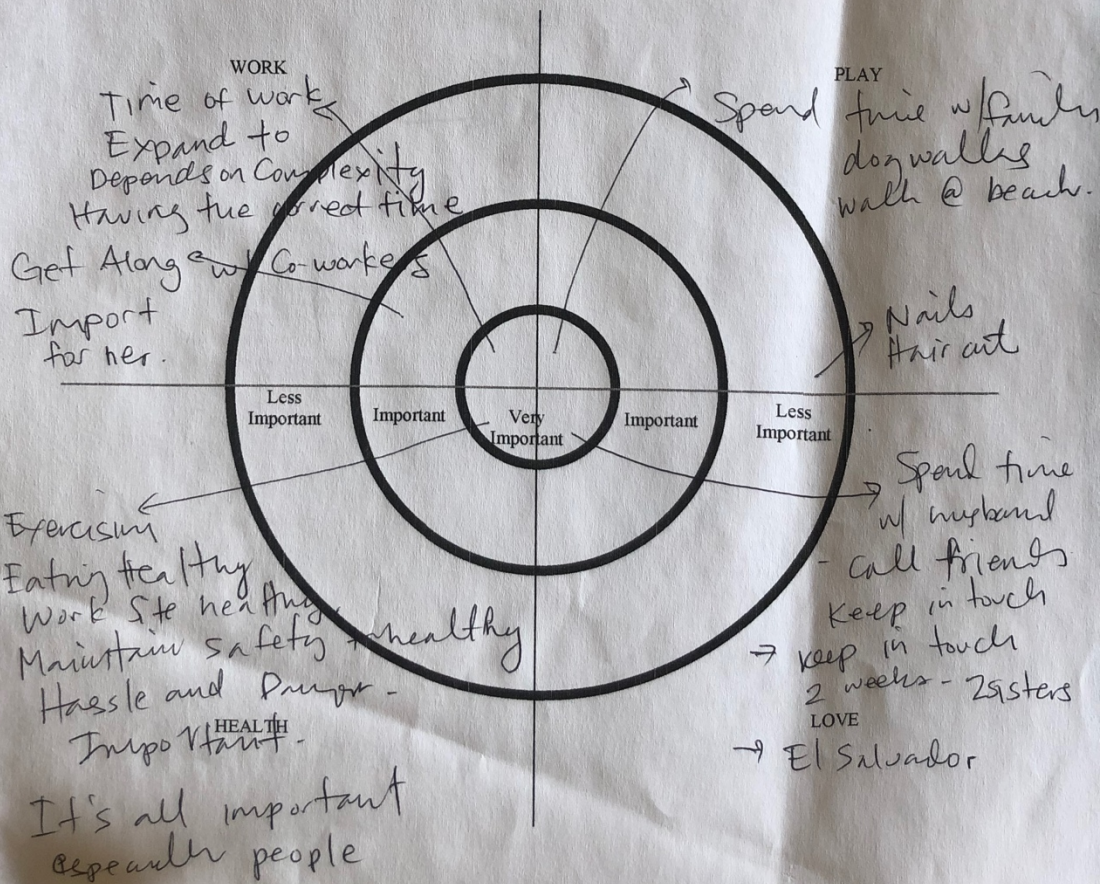 WORK
Time of work
Expand to
Depends on Complexity
Having the correct time
Get Along w/ Co-workers
Import
for her.
PLAY
Spend time w/ family
dogwalks
walk @ beach.
Nails
Haircut
Less Important
Important
Very Important
Important
Less Important
Exercising
Eating Healthy
Work Site healthy
Maintain safety + healthy
Hassle and Danger -
Important.
HEALTH
It's all important
especially people
Spend time
w/ husband
- Call friends
Keep in touch
→ keep in touch
2 weeks - 2 sisters
LOVE
→ El Salvador